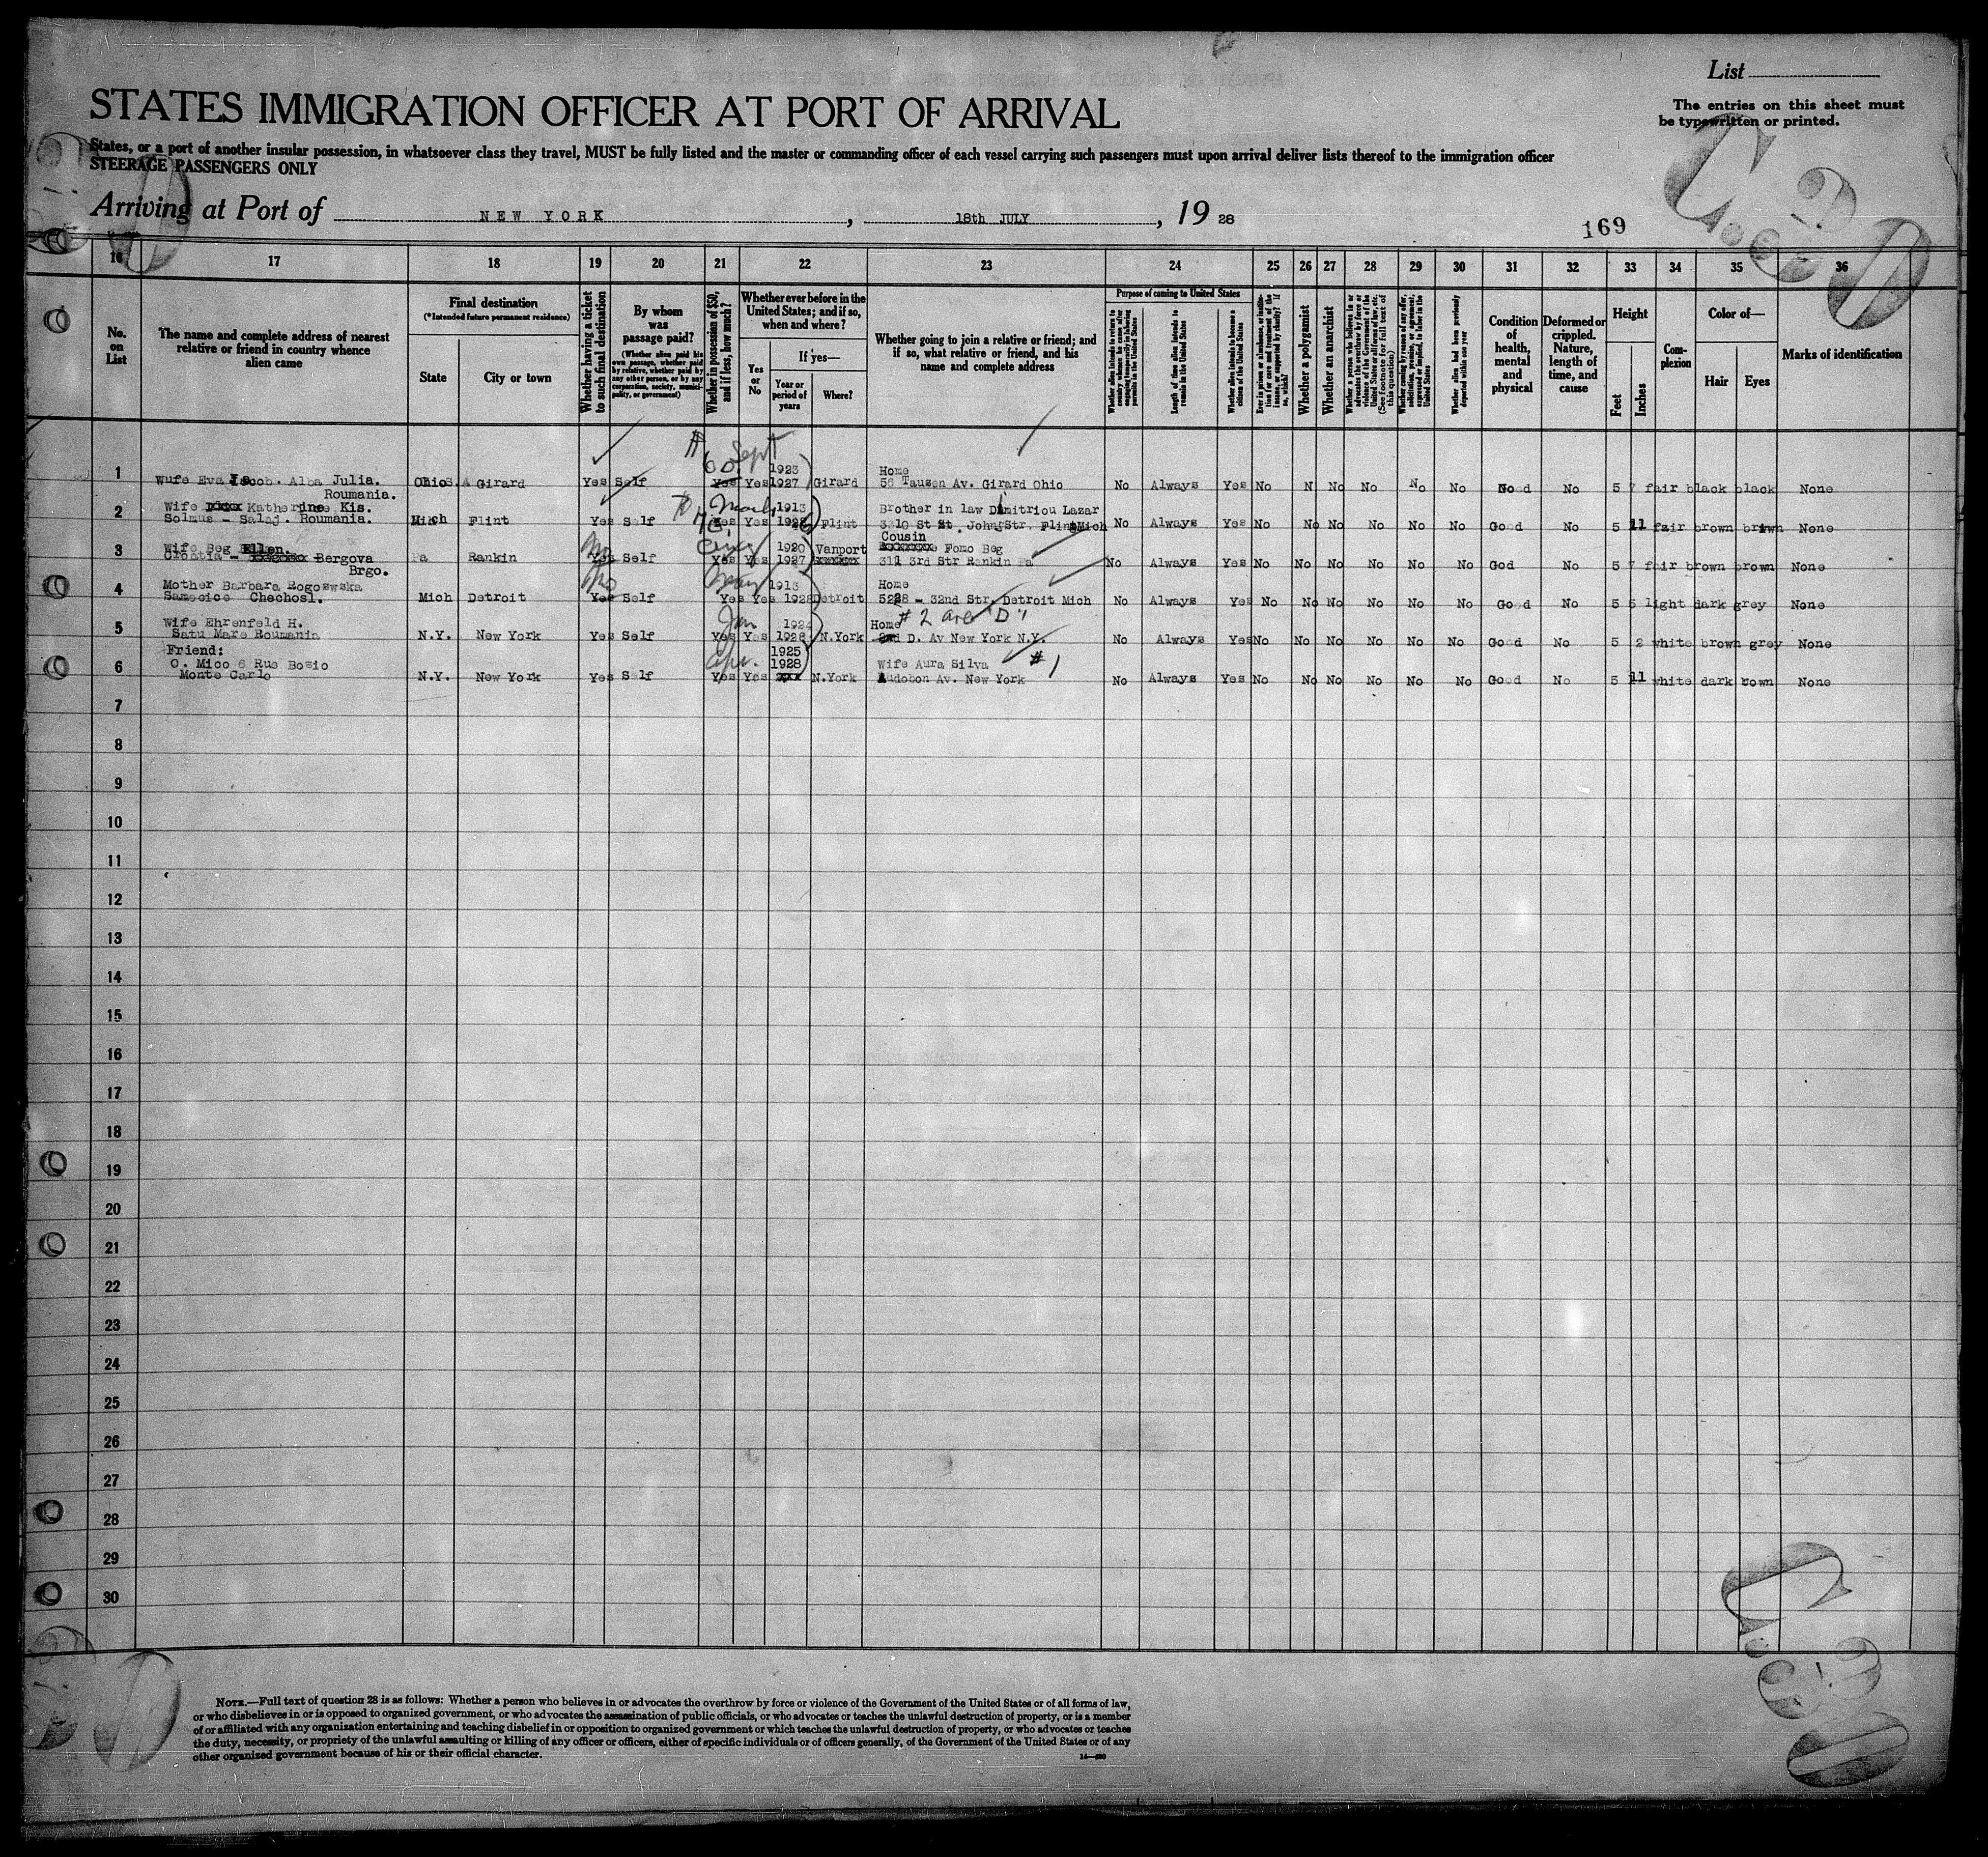 List
The entries on this sheet must
be typewritten or printed.
STATES IMMIGRATION OFFICER AT PORT OF ARRIVAL
States, or a port of another insular possession, in whatsoever class they travel, MUST be fully listed and the master or commanding officer of each vessel carrying such passengers must upon arrival deliver lists thereof to the immigration officer
STEERAGE PASSENGERS ONLY
Arriving at Port of NEW YORK, 18th JULY, 1928
169
16 17 18 19 20 21 22 23 24 25 26 27 28 29 30 31 32 33 34 35 36
No. on List
The name and complete address of nearest relative or friend in country whence alien came
Final destination
(*Intended future permanent residence)
State
City or town
Whether having a ticket to such final destination
By whom was passage paid?
(Whether alien paid his own passage, whether paid by relative, whether paid by any other person, or by any corporation, society, municipality, or government)
Whether in possession of $50, and if less, how much?
Whether ever before in the United States; and if so, when and where?
Yes or No
If yes—
Year or period of years
Where?
Whether going to join a relative or friend; and if so, what relative or friend, and his name and complete address
Purpose of coming to United States
Whether alien intends to return to country whence he came after engaging temporarily in laboring pursuits in the United States
Length of time alien intends to remain in the United States
Whether alien intends to become a citizen of the United States
Whether a polygamist
Whether an anarchist
Whether alien had been previously deported within one year
Condition of health, mental and physical
Deformed or crippled. Nature, length of time, and cause
Height
Feet
Inches
Complexion
Color of—
Hair
Eyes
Marks of identification
Sept
1 Wufe Eva Iacob. Alba Julia. Roumania. Ohio Girard Yes Self 60 Yes Yes 1923 1927 Girard Home 56 Tauson Av. Girard Ohio No Always Yes No N No No No No Good No 5 7 fair black black None
2 Wife Katherine Kis. Solmus - Salaj. Roumania. Mich Flint Yes Self Yes Yes 1913 Flint Brother in law Dimitriou Lazar 3310 St. John Str. Flint Mich No Always Yes No No No No No No Good No 5 11 fair brown brown None
3 Wife Beg Ellen. Croatia - Bergova Brgo. Pa Rankin No Yes Self Yes Yes 1920 1927 Vanport Cousin Fomo Beg 311 3rd Str Rankin Pa No Always Yes No No No No No No God No 5 7 fair brown brown None
4 Mother Barbara Rogoswska Samocice Chechosl. Mich Detroit No Yes Self May Yes Yes 1913 1928 Detroit Home 5228 - 32nd Str. Detroit Mich No Always Yes No No No No No No Good No 5 5 light dark grey None
5 Wife Ehrenfeld H. Satu Mare Roumania N.Y. New York Yes Self Jan Yes Yes 1924 1928 N.York Home #2 ave "D" 2nd D. Av New York N.Y. No Always Yes No No No No No No Good No 5 2 white brown grey None
6 Friend: O. Mico 6 Rue Bosio Monte Carlo N.Y. New York Yes Self Apr. Yes Yes 1925 1928 N.York Wife Aura Silva #1 Audobon Av. New York No Always Yes No No No No No No Good No 5 11 white dark brown None
7
8
9
10
11
12
13
14
15
16
17
18
19
20
21
22
23
24
25
26
27
28
29
30
NOTE.—Full text of question 28 is as follows: Whether a person who believes in or advocates the overthrow by force or violence of the Government of the United States or of all forms of law,
or who disbelieves in or is opposed to organized government, or who advocates the assassination of public officials, or who advocates or teaches the unlawful destruction of property, or is a member
of or affiliated with any organization entertaining and teaching disbelief in or opposition to organized government or which teaches the unlawful destruction of property, or who advocates or teaches
the duty, necessity, or propriety of the unlawful assaulting or killing of any officer or officers, either of specific individuals or of officers generally, of the Government of the United States or of any
other organized government because of his or their official character.
14—420